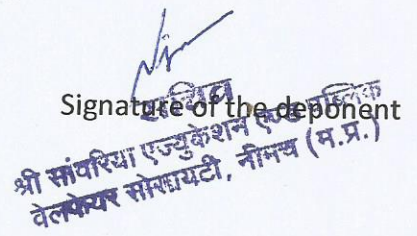 सचिव
Signature of the deponent
श्री सांवरिया एज्युकेशन एण्ड पब्लिक
वेलफेयर सोसायटी, नीमच (म.प्र.)